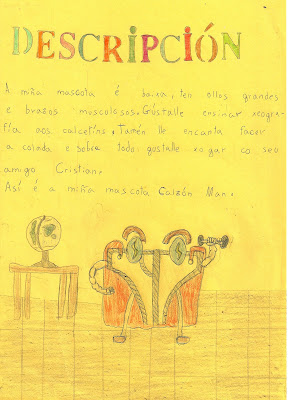 DESCRIPCIÓN
A miña mascota é baixa, ten ollos grandes
e brazos musculosos. Gústalle ensinar xeogra-
fía aos calcetíns. Tamén lle encanta facer
a colada e sobre todo: gústalle xogar co seu
amigo Cristian.
Así é a miña mascota Calzón Man.